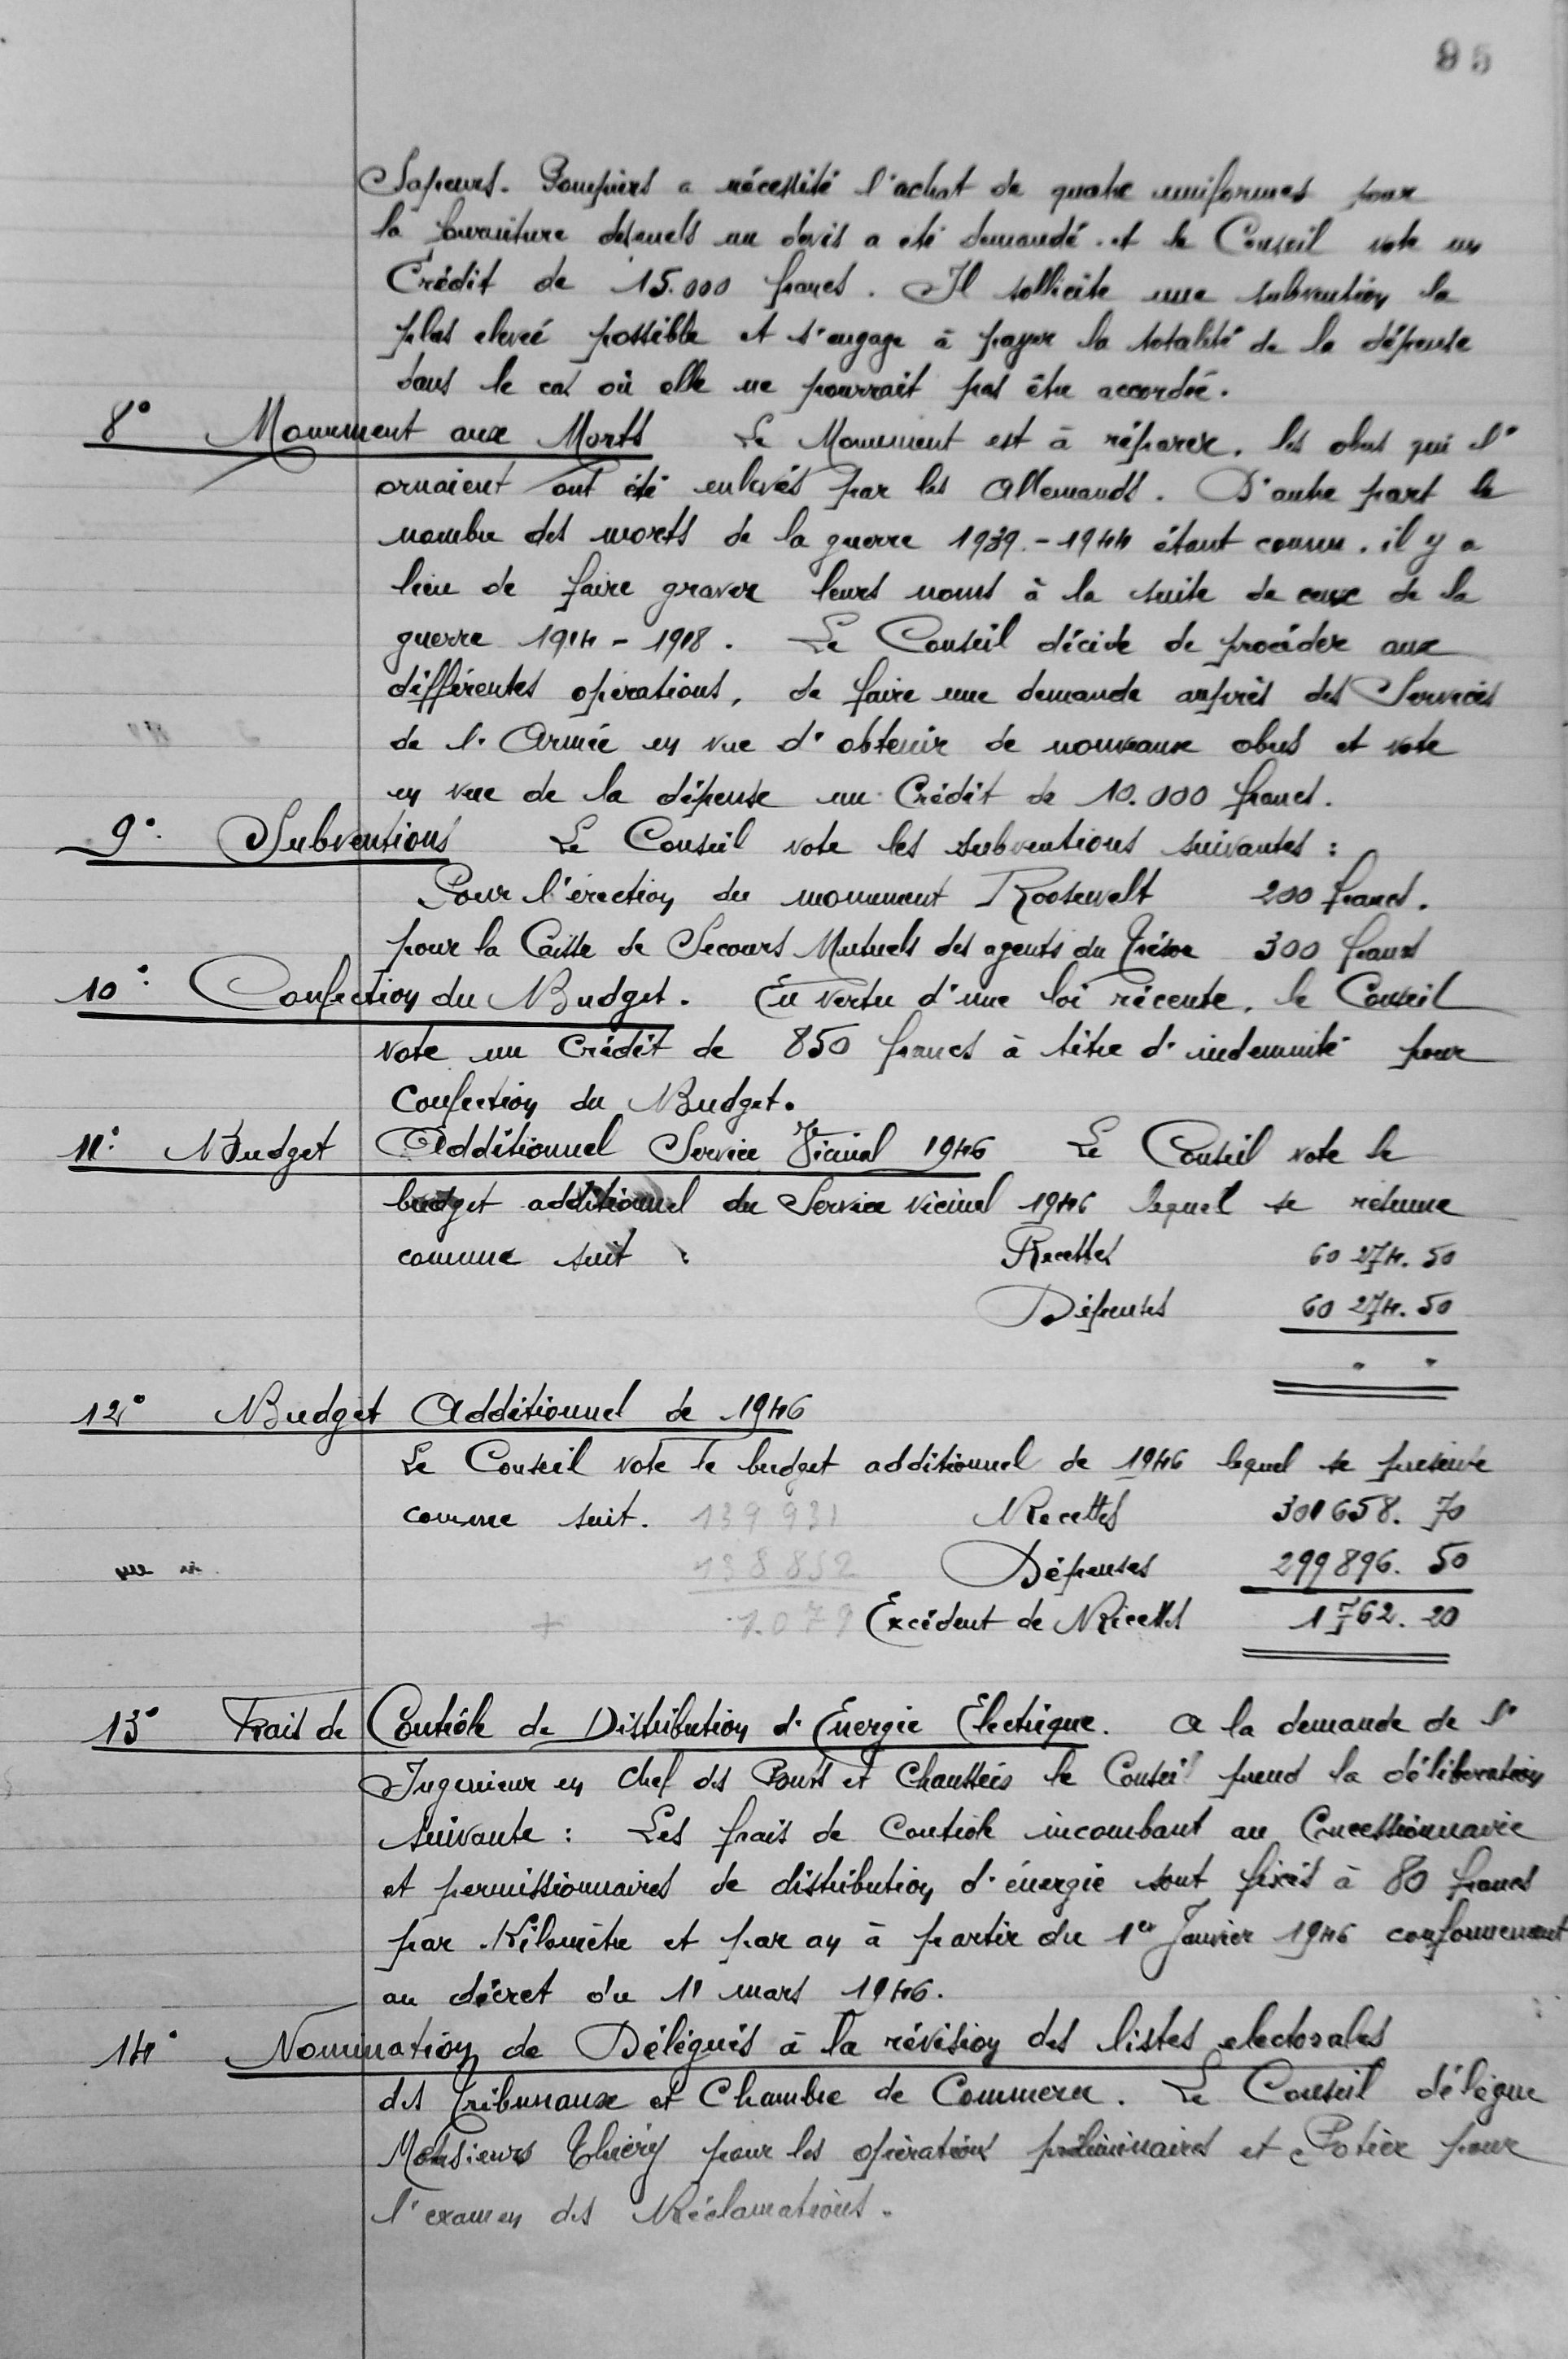 95
Sapeurs-Pompiers a nécessité l'achat de quatre uniformes pour
la fourniture desquels un devis a été demandé. et le Conseil vote un
Crédit de 15.000 francs. Il sollicite une subvention la
plus elevée possible et s'engage à payer la totalité de la dépense
dans le cas où elle ne pourrait pas être accordée.
8° Monument aux Morts Le Monument est à réparer, les obus qui l'
ornaient ont été enlevés par les Allemands. D'autre part le
nombre des morts de la guerre 1939-1944 étant connu, il y a
lieu de faire graver leurs noms à la suite de ceux de la
guerre 1914-1918. Le Conseil décide de procéder aux
différentes opérations, de faire une demande auprès des Services
de l'Armée en vue d'obtenir de nouveaux obus et vote
en vue de la dépense un Crédit de 10.000 francs.
9° Subventions Le Conseil vote les subventions suivantes :
Pour l'érection du monument Roosevelt 200 francs.
pour la Caisse de Secours Mutuels des agents du Trésor 300 francs
10° Confection du Budget. En vertu d'une loi récente, le Conseil
vote un Crédit de 850 francs à titre d'indemnité pour
Confection du Budget.
11° Budget Additionnel Service Vicinal 1946 Le Conseil vote le
budget additionnel du Service vicinal 1946 lequel se résume
comme suit : Recettes 60 274. 50
Dépenses 60 274. 50
" "
12° Budget Additionnel de 1946
Le Conseil vote le budget additionnel de 1946 lequel se présente
comme suit. 139 931 Recettes 301658. 70
138 852 Dépenses 299896. 50
+ 1.079 Excédent de Recettes 1762. 20
13° Frais de Contrôle de Distribution d'Energie Electrique. A la demande de l'
Ingenieur en Chef des Ponts et Chaussées le Conseil prend la délibération
suivante : Les frais de Controle incombant au Concessionnaire
et permissionnaires de distribution d'énergie sont fixés à 80 francs
par Kilomètre et par an à partir du 1er Janvier 1946 conformement
au décret du 11 mars 1946.
14° Nomination de Délégués à la révision des listes electorales
des Tribunaux et Chambre de Commerce. Le Conseil délègue
Messieurs Thiéry pour les opérations préliminaires et Potier pour
l'examen des Réclamations.